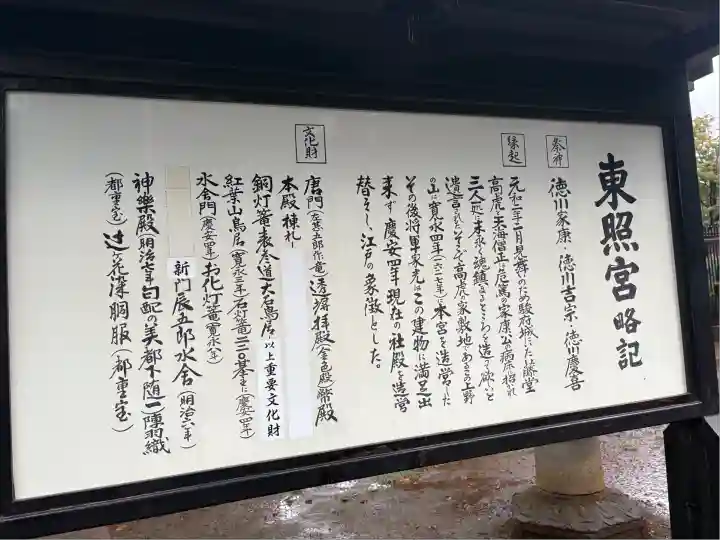 東照宮略記
祭神
徳川家康・徳川吉宗・徳川慶喜
縁起
元和二年二月見舞のため駿府城にいた藤堂
高虎と天海僧正は危篤の家康公の病床に招かれ
三人一処に末永く魂鎮まるところを造って欲しいと
遺言された。そこで高虎の家敷地であった上野
の山に寛永四年(一六二七年)に本宮を造営した
その後将軍家光はこの建物に満足出
来ず慶安四年現在の社殿を造営
替えし、江戸の象徴とした。
文化財
唐門(左甚五郎作竜)透塀拝殿(金色殿)幣殿
本殿棟札
銅灯篭表参道大石鳥居 以上重要文化財
紅葉山鳥居(寛永二年)石灯篭二二〇基(慶安四年)
水舎門(慶安四年)お化灯篭(寛永八年)
新門辰五郎水舎(明治六年)
神樂殿(明治七年)
(都重宝)辻ヶ花染胴服(都重宝)